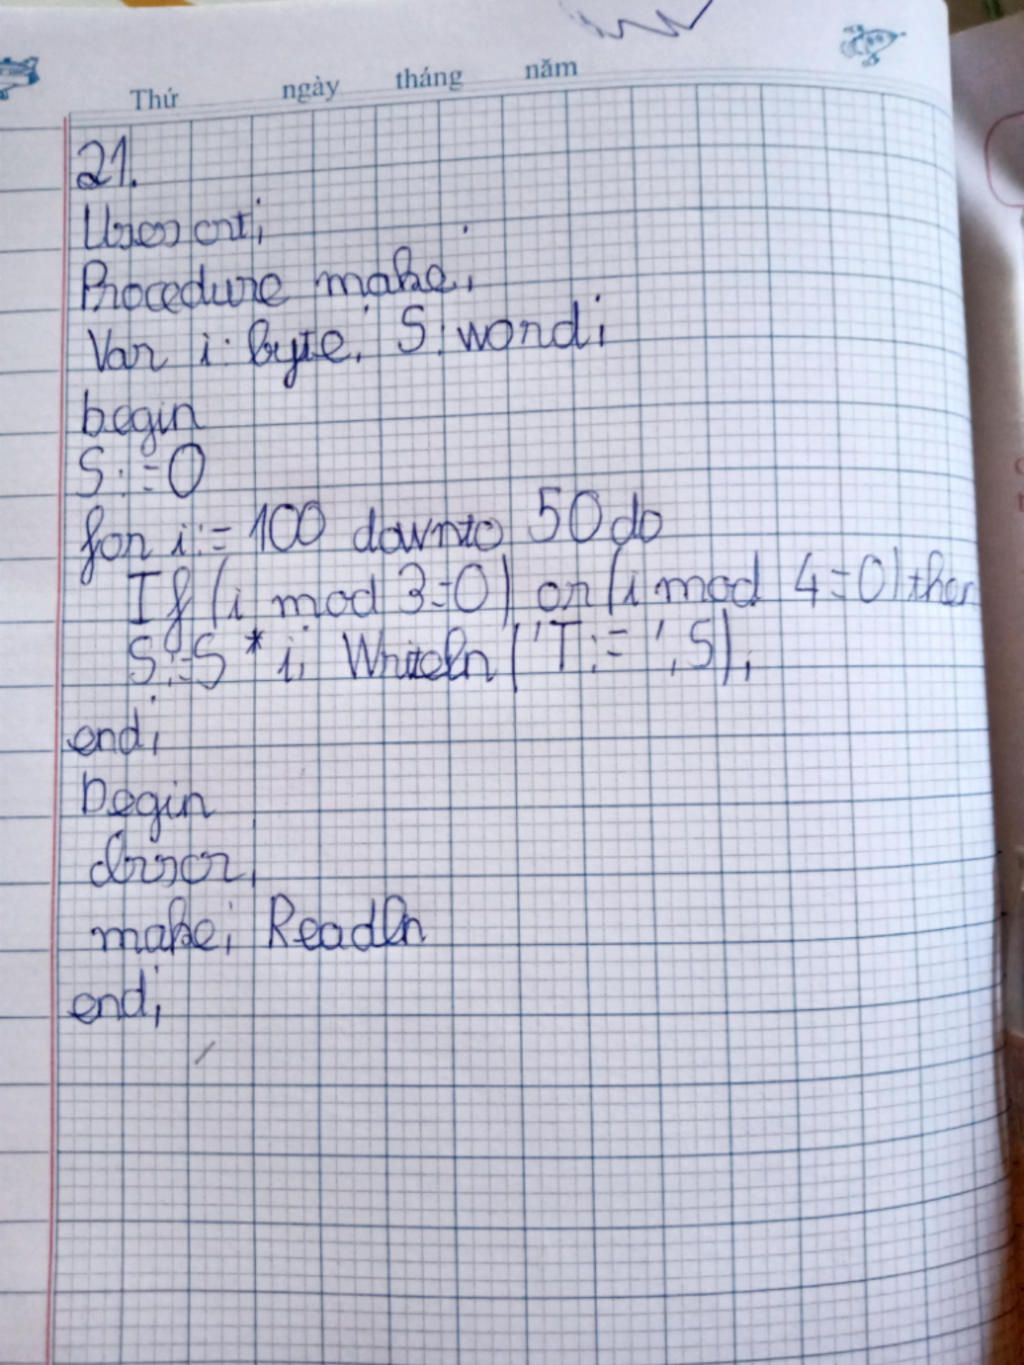 Thứ ngày tháng năm
21.
Uses crt;
Procedure make;
Var i: byte; S: word;
begin
S:=0
for i:=100 downto 50 do
If (i mod 3=0) or (i mod 4=0) then
S:=S*i; Writeln('T:=',S);
end;
begin
clrscr;
make; Readln
end;